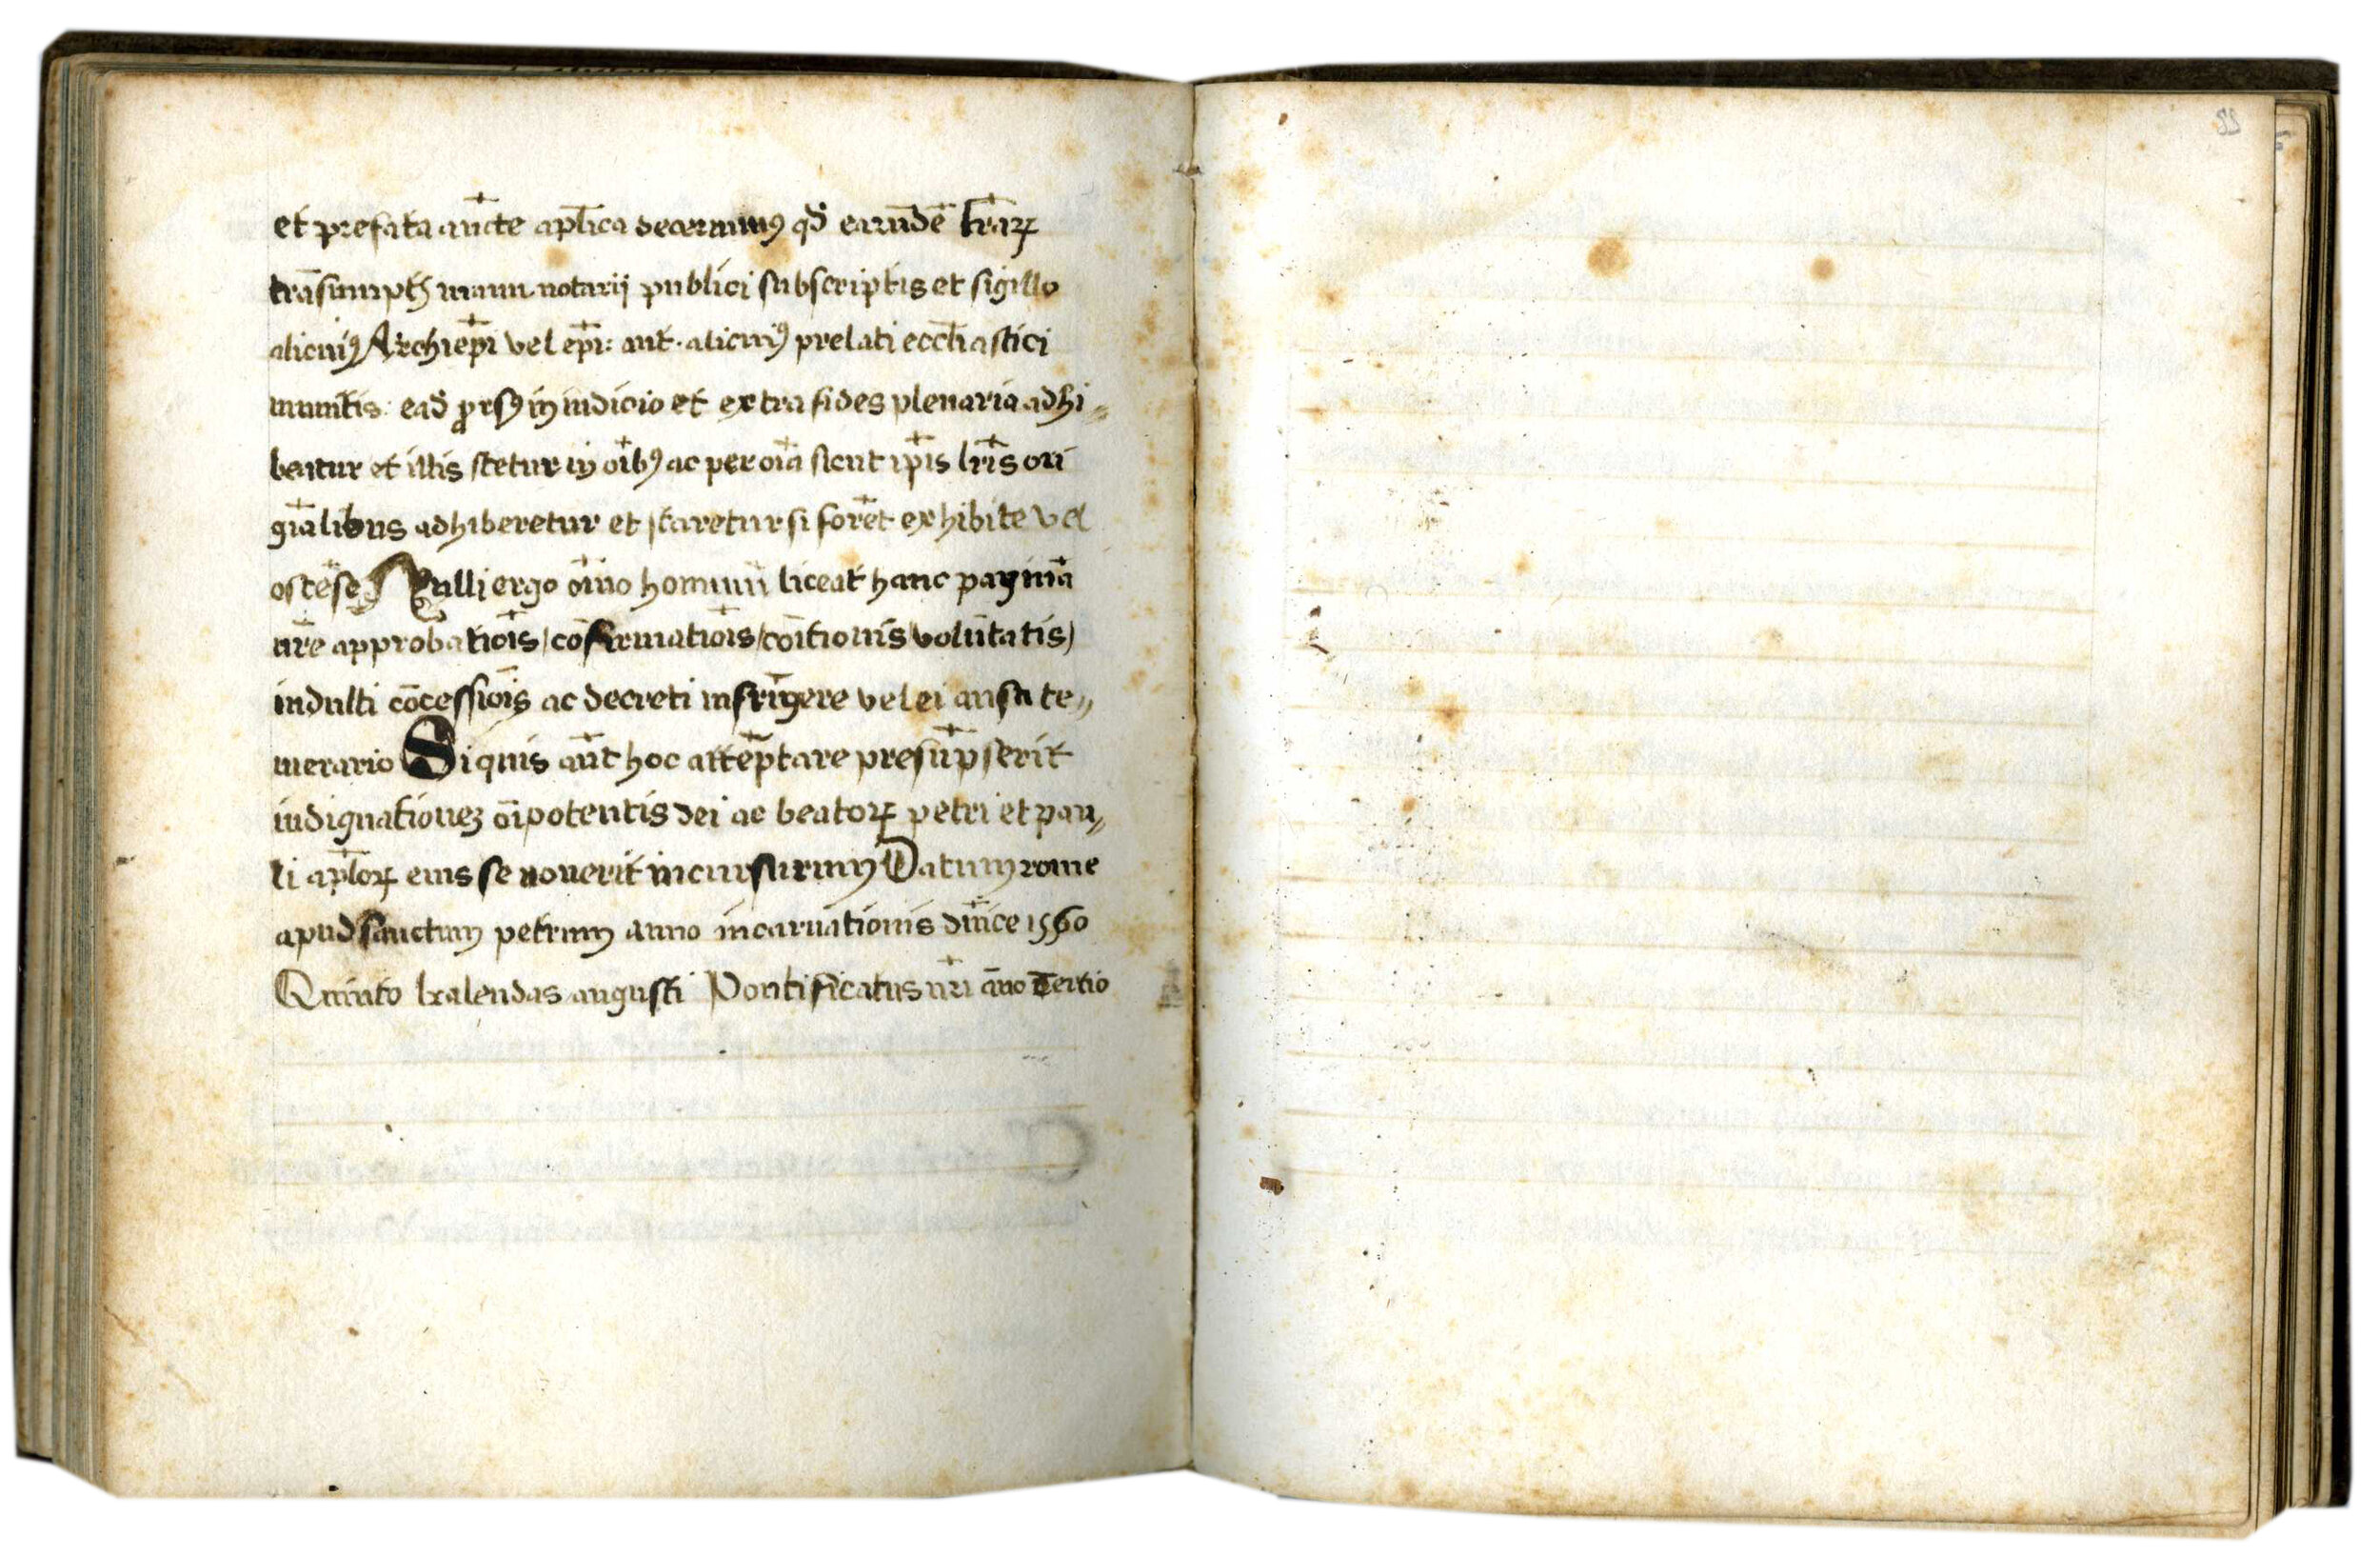 et prefata aūcte ap̄lica decernimꝰ qđ earūdē lr̄arꝝ
trāsumptis manu notarij publici subscriptis et sigillo
alicuiꝰ Archiep̄i vel ep̄i: aut alicuiꝰ prelati eccl̄iastici
munitis: eađ prorsꝰ in iudicio et extra fides plenaria adhi〃
beatur et illis stetur in oībꝰ ac per oīa sicut ip̄is lr̄is ori
gīalibus adhiberetur et staretur si forēt exhibite vel
ostēse Nulli ergo oīno hominū liceat hanc paginā
nr̄e approbatiōis/cōfirmatiōis/cōītionis/volūtatis/
indulti cōcessiōis ac decreti infrīgere vel ei ausu te〃
merario Si quis aūt hoc attēptare presūpserit
indignationeʒ oīpotentis dei ac beatorꝝ petri et pau〃
li ap̄lorꝝ eius se noverit incursurum Datum rome
apud sanctum petrum anno incarnationis dn̄ice 1560
Quinto kalendas augusti Pontificatus nr̄i āno Tertio